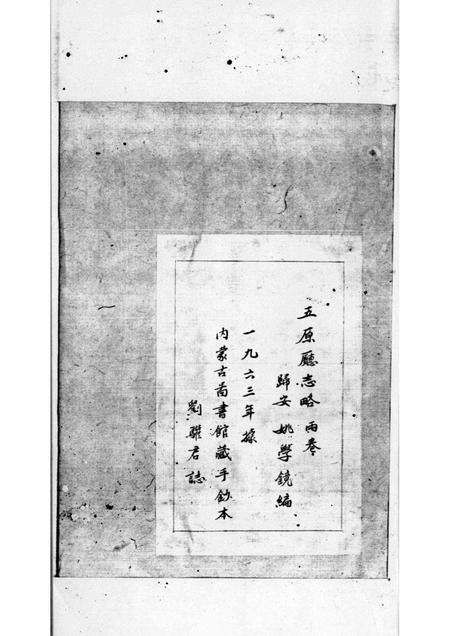 五原廳志略 兩卷
歸安 姚學鏡編
一九六三年據
內蒙古啚書館藏手鈔本
劉騄君誌